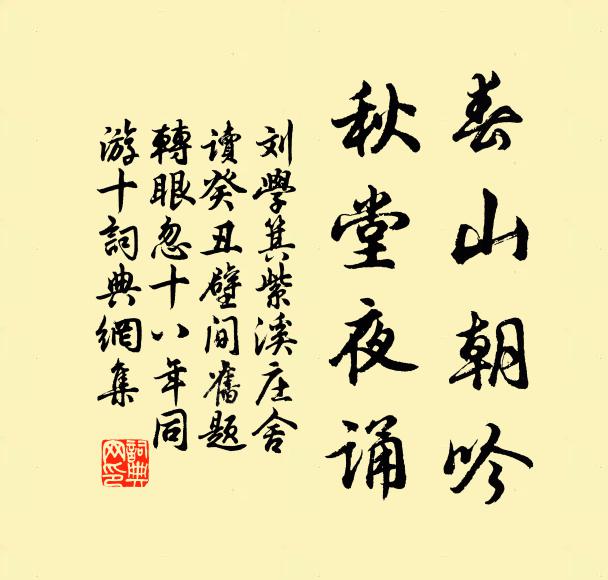 春山朝吟
秋堂夜诵
刘學箕紫溪庄舍
讀癸丑壁间舊题
轉眼忽十八年同
游十詞典網集
詞典网印